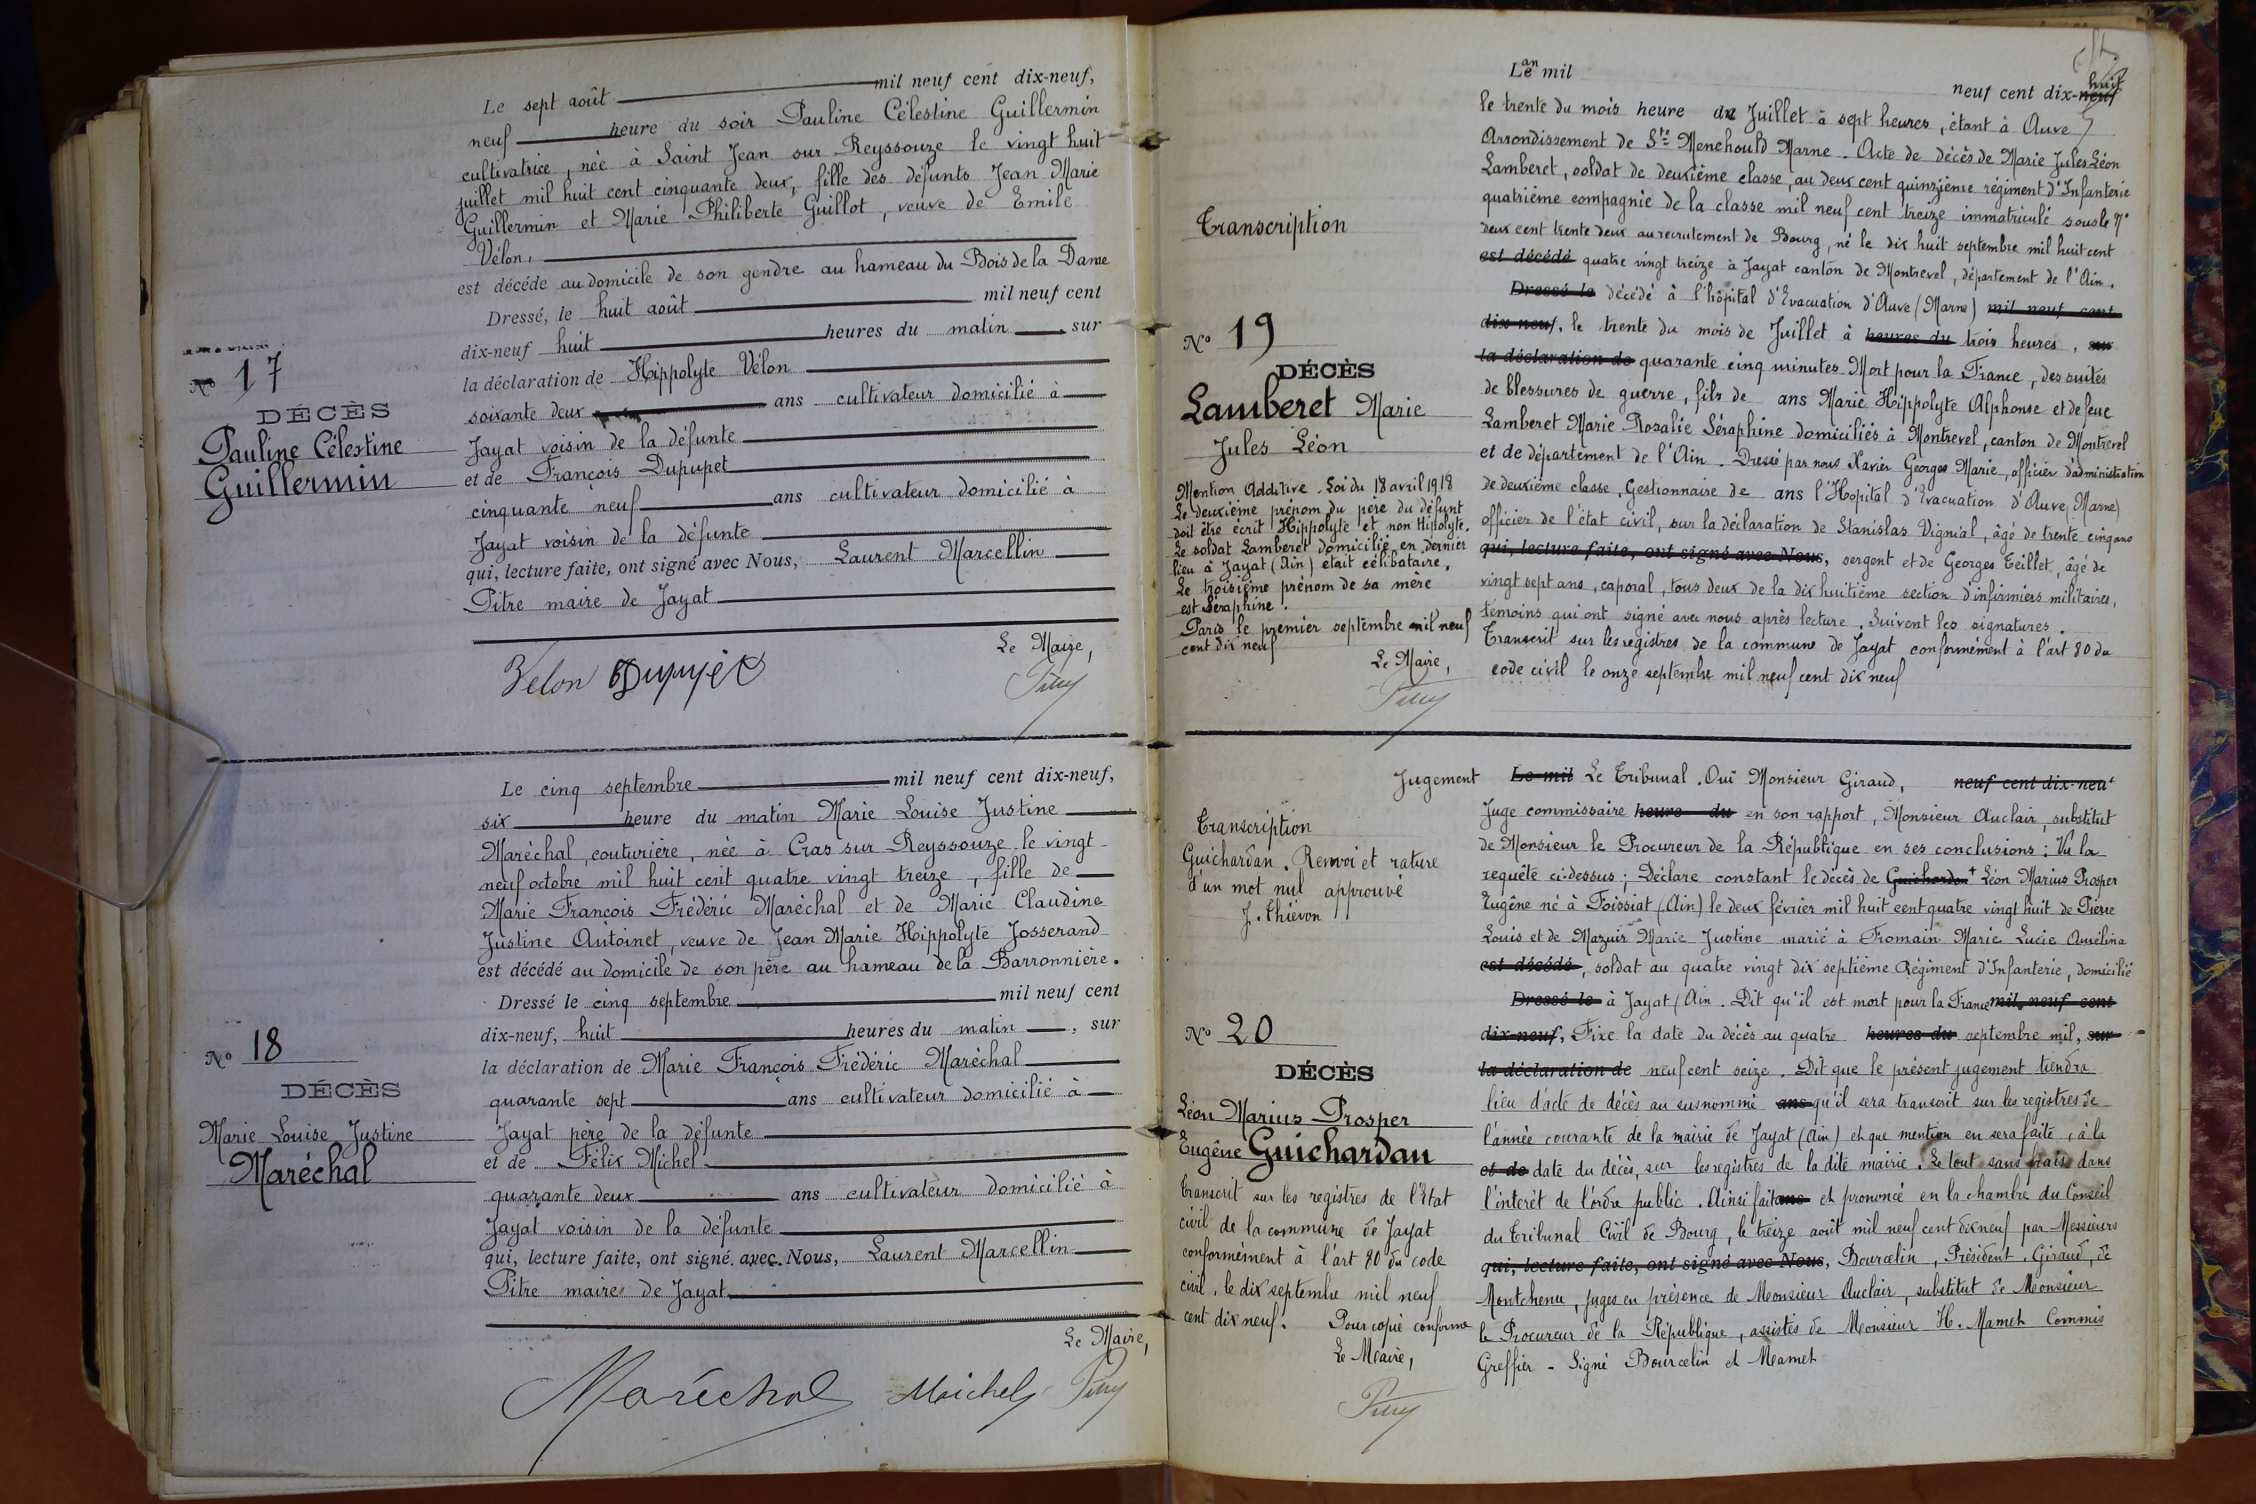 Le sept août mil neuf cent dix-neuf,
neuf heure du soir Pauline Célestine Guillermin
cultivatrice, née à Saint Jean sur Reyssouze le vingt huit
juillet mil huit cent cinquante deux, fille des défunts Jean Marie
Guillermin et Marie Philiberte Guillot, veuve de Emile
Vélon,
est décédé au domicile de son gendre au hameau du Bois de la Dame
Dressé, le huit août mil neuf cent
dix-neuf huit heures du matin, sur
la déclaration de Hippolyte Vélon
soixante deux ans cultivateur domicilié à
Jayat voisin de la défunte
et de François Dupupet
cinquante neuf ans cultivateur domicilié à
Jayat voisin de la défunte
qui, lecture faite, ont signé avec Nous, Laurent Marcellin
Pitre maire de Jayat
Le Maire,
Velon Dupupet
Pitre
No 17
DÉCÈS
Pauline Célestine
Guillermin
Le cinq septembre mil neuf cent dix-neuf,
six heure du matin Marie Louise Justine
Maréchal, couturière, née à Cras sur Reyssouze le vingt
neuf octobre mil huit cent quatre vingt treize, fille de
Marie François Frédéric Maréchal et de Marie Claudine
Justine Antoinet, veuve de Jean Marie Hippolyte Josserand
est décédé au domicile de son père au hameau de la Barronnière.
Dressé le cinq septembre mil neuf cent
dix-neuf, huit heures du matin, sur
la déclaration de Marie François Frédéric Maréchal
quarante sept ans cultivateur domicilié à
Jayat père de la défunte
et de Félix Michel
quarante deux ans cultivateur domicilié à
Jayat voisin de la défunte
qui, lecture faite, ont signé avec Nous, Laurent Marcellin
Pitre maire de Jayat
Le Maire,
Maréchal Michel Pitre
No 18
DÉCÈS
Marie Louise Justine
Maréchal
Transcription
No 19
DÉCÈS
Lamberet Marie
Jules Léon
Mention Additive. Loi du 18 avril 1918
Le deuxième prénom du père du défunt
doit être écrit Hippolyte et non Hipolyte.
Le soldat Lamberet domicilié en dernier
lieu à Jayat (Ain) était célibataire.
Le troisième prénom de sa mère
est Séraphine.
Paris le premier septembre mil neuf
cent dix neuf
Le Maire,
Pitre
Le an mil neuf cent dix-neuf huit
le trente du mois heure du Juillet à sept heures, étant à Auve
Arrondissement de Ste Menehould Marne. Acte de décès de Marie Jules Léon
Lamberet, soldat de deuxième classe, au deux cent quinzième régiment d'Infanterie
quatrième compagnie de la classe mil neuf cent treize immatriculé sous le No
deux cent trente deux au recrutement de Bourg, né le dix huit septembre mil huit cent
est décédé quatre vingt treize à Jayat canton de Montrevel, département de l'Ain.
Dressé le décédé à l'hôpital d'Evacuation d'Auve (Marne) mil neuf cent
dix-neuf, le trente du mois de Juillet à heures du trois heures, sur
la déclaration de quarante cinq minutes. Mort pour la France, des suites
de blessures de guerre, fils de ans Marie Hippolyte Alphonse et de feue
Lamberet Marie Rosalie Séraphine domiciliés à Montrevel, canton de Montrevel
et de département de l'Ain. Dressé par nous Xavier Georges Marie, officier d'administration
de deuxième classe, Gestionnaire de ans l'Hopital d'Evacuation d'Auve, Marne)
officier de l'état civil, sur la déclaration de Stanislas Vignial, âgé de trente cinq ans
qui, lecture faite, ont signé avec Nous, sergent et de Georges Teillet, âgé de
vingt sept ans, caporal, tous deux de la dix huitième section d'infirmiers militaires,
témoins qui ont signé avec nous après lecture. Suivent les signatures.
Transcrit sur les registres de la commune de Jayat conformément à l'art 80 du
code civil le onze septembre mil neuf cent dix neuf
Jugement
Transcription
Guichardan. Renvoi et rature
d'un mot nul approuvé
J. Thiévon
No 20
DÉCÈS
Léon Marius Prosper
Eugène Guichardan
Transcrit sur les registres de l'Etat
civil de la commune de Jayat
conformément à l'art 80 du code
civil, le dix septembre mil neuf
cent dix neuf. Pour copie conforme
Le Maire,
Pitre
Le mil Le Tribunal. Ouï Monsieur Giraud, neuf cent dix-neuf
Juge commissaire heure du en son rapport, Monsieur Auclair, substitut
de Monsieur le Procureur de la République en ses conclusions: Vu la
requête ci-dessus; Déclare constant le décès de Guichardon + Léon Marius Prosper
Eugène né à Foissiat (Ain) le deux février mil huit cent quatre vingt huit de Pierre
Louis et de Mazuir Marie Justine marié à Fromain Marie Lucie Amélina
est décédé, soldat au quatre vingt dix septième Régiment d'Infanterie, domicilié
Dressé le à Jayat (Ain. Dit qu'il est mort pour la France mil neuf cent
dix-neuf, Fixe la date du décès au quatre heures du septembre mil, sur
la déclaration de neuf cent seize. Dit que le présent jugement tiendra
lieu d'acte de décès au susnommé ans qu'il sera transcrit sur les registres de
l'année courante de la mairie de Jayat (Ain) et que mention en sera faite, à la
et de date du décès, sur les registres de la dite mairie. Le tout sans frais dans
l'intérêt de l'ordre public. Ainsi fait ans et prononcé en la chambre du Conseil
du Tribunal Civil de Bourg, le treize août mil neuf cent dix neuf par Messieurs
qui, lecture faite, ont signé avec Nous, Bourcelin, Président, Giraud, de
Montchenu, juges en présence de Monsieur Auclair, substitut de Monsieur
le Procureur de la République, assistés de Monsieur H. Mamet Commis
Greffier - Signé Bourcelin et Mamet